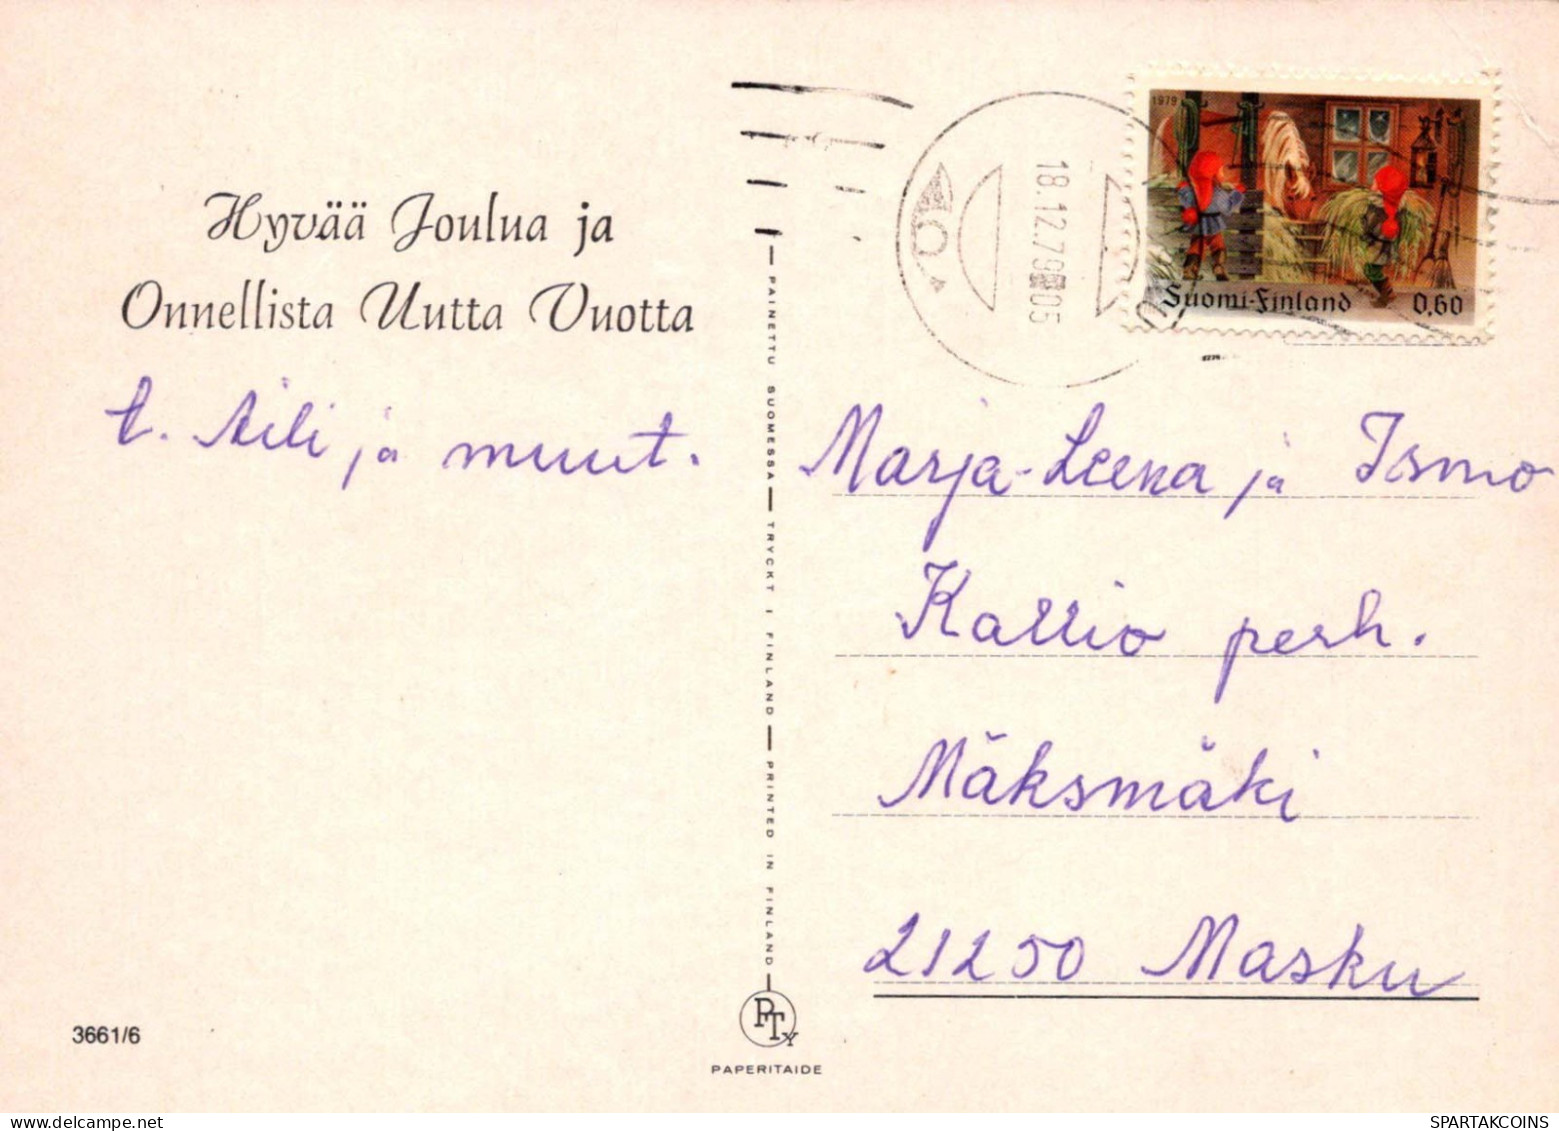 Hyvää Joulua ja
Onnellista Uutta Vuotta
t. Aili ja muut.
3661/6
PAINETTU SUOMESSA — TRYCKT I FINLAND — PRINTED IN FINLAND
PTY
PAPERITAIDE
18.12.79 05
1979
Suomi-Finland 0,60
Marja-Leena ja Ismo
Kallio perh.
Mäksmäki
21250 Masku
SPARTAKCOINS